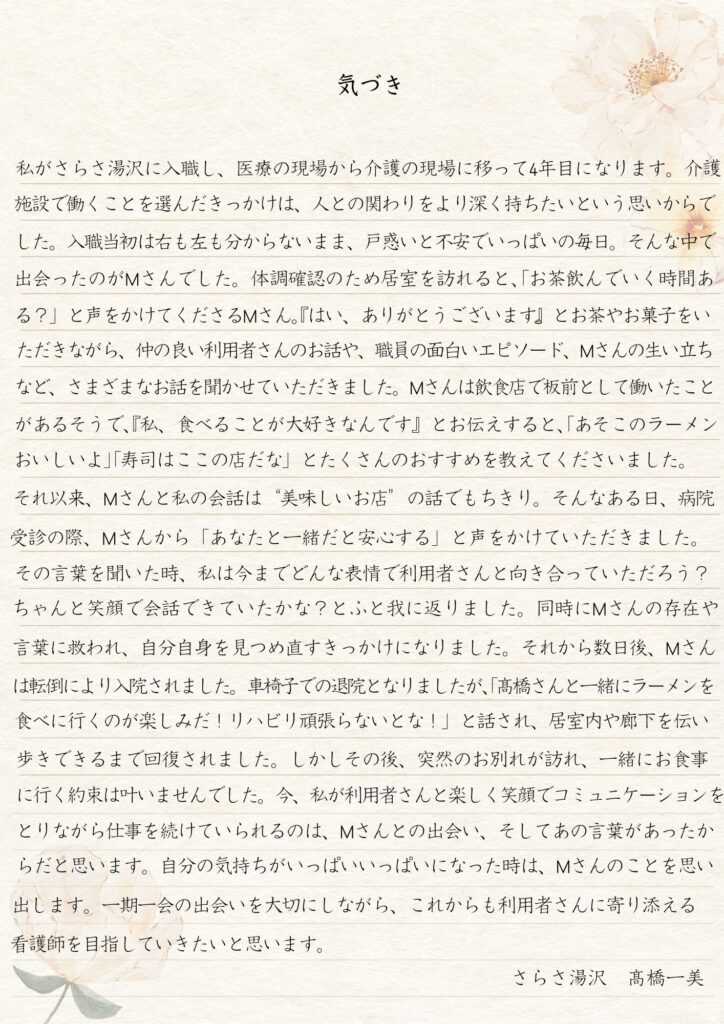 気づき
私がさらさ湯沢に入職し、医療の現場から介護の現場に移って4年目になります。介護
施設で働くことを選んだきっかけは、人との関わりをより深く持ちたいという思いからで
した。入職当初は右も左も分からないまま、戸惑いと不安でいっぱいの毎日。そんな中で
出会ったのがMさんでした。体調確認のため居室を訪れると、「お茶飲んでいく時間あ
る？」と声をかけてくださるMさん。『はい、ありがとうございます』とお茶やお菓子をい
ただきながら、仲の良い利用者さんのお話や、職員の面白いエピソード、Mさんの生い立ち
など、さまざまなお話を聞かせていただきました。Mさんは飲食店で板前として働いたこと
があるそうで、『私、食べることが大好きなんです』とお伝えすると、「あそこのラーメン
おいしいよ」「寿司はここの店だな」とたくさんのおすすめを教えてくださいました。
それ以来、Mさんと私の会話は“美味しいお店”の話でもちきり。そんなある日、病院
受診の際、Mさんから「あなたと一緒だと安心する」と声をかけていただきました。
その言葉を聞いた時、私は今までどんな表情で利用者さんと向き合っていただろう？
ちゃんと笑顔で会話できていたかな？とふと我に返りました。同時にMさんの存在や
言葉に救われ、自分自身を見つめ直すきっかけになりました。それから数日後、Mさん
は転倒により入院されました。車椅子での退院となりましたが、「髙橋さんと一緒にラーメンを
食べに行くのが楽しみだ！リハビリ頑張らないとな！」と話され、居室内や廊下を伝い
歩きできるまで回復されました。しかしその後、突然のお別れが訪れ、一緒にお食事
に行く約束は叶いませんでした。今、私が利用者さんと楽しく笑顔でコミュニケーションを
とりながら仕事を続けていられるのは、Mさんとの出会い、そしてあの言葉があったか
らだと思います。自分の気持ちがいっぱいいっぱいになった時は、Mさんのことを思い
出します。一期一会の出会いを大切にしながら、これからも利用者さんに寄り添える
看護師を目指していきたいと思います。
さらさ湯沢　髙橋一美